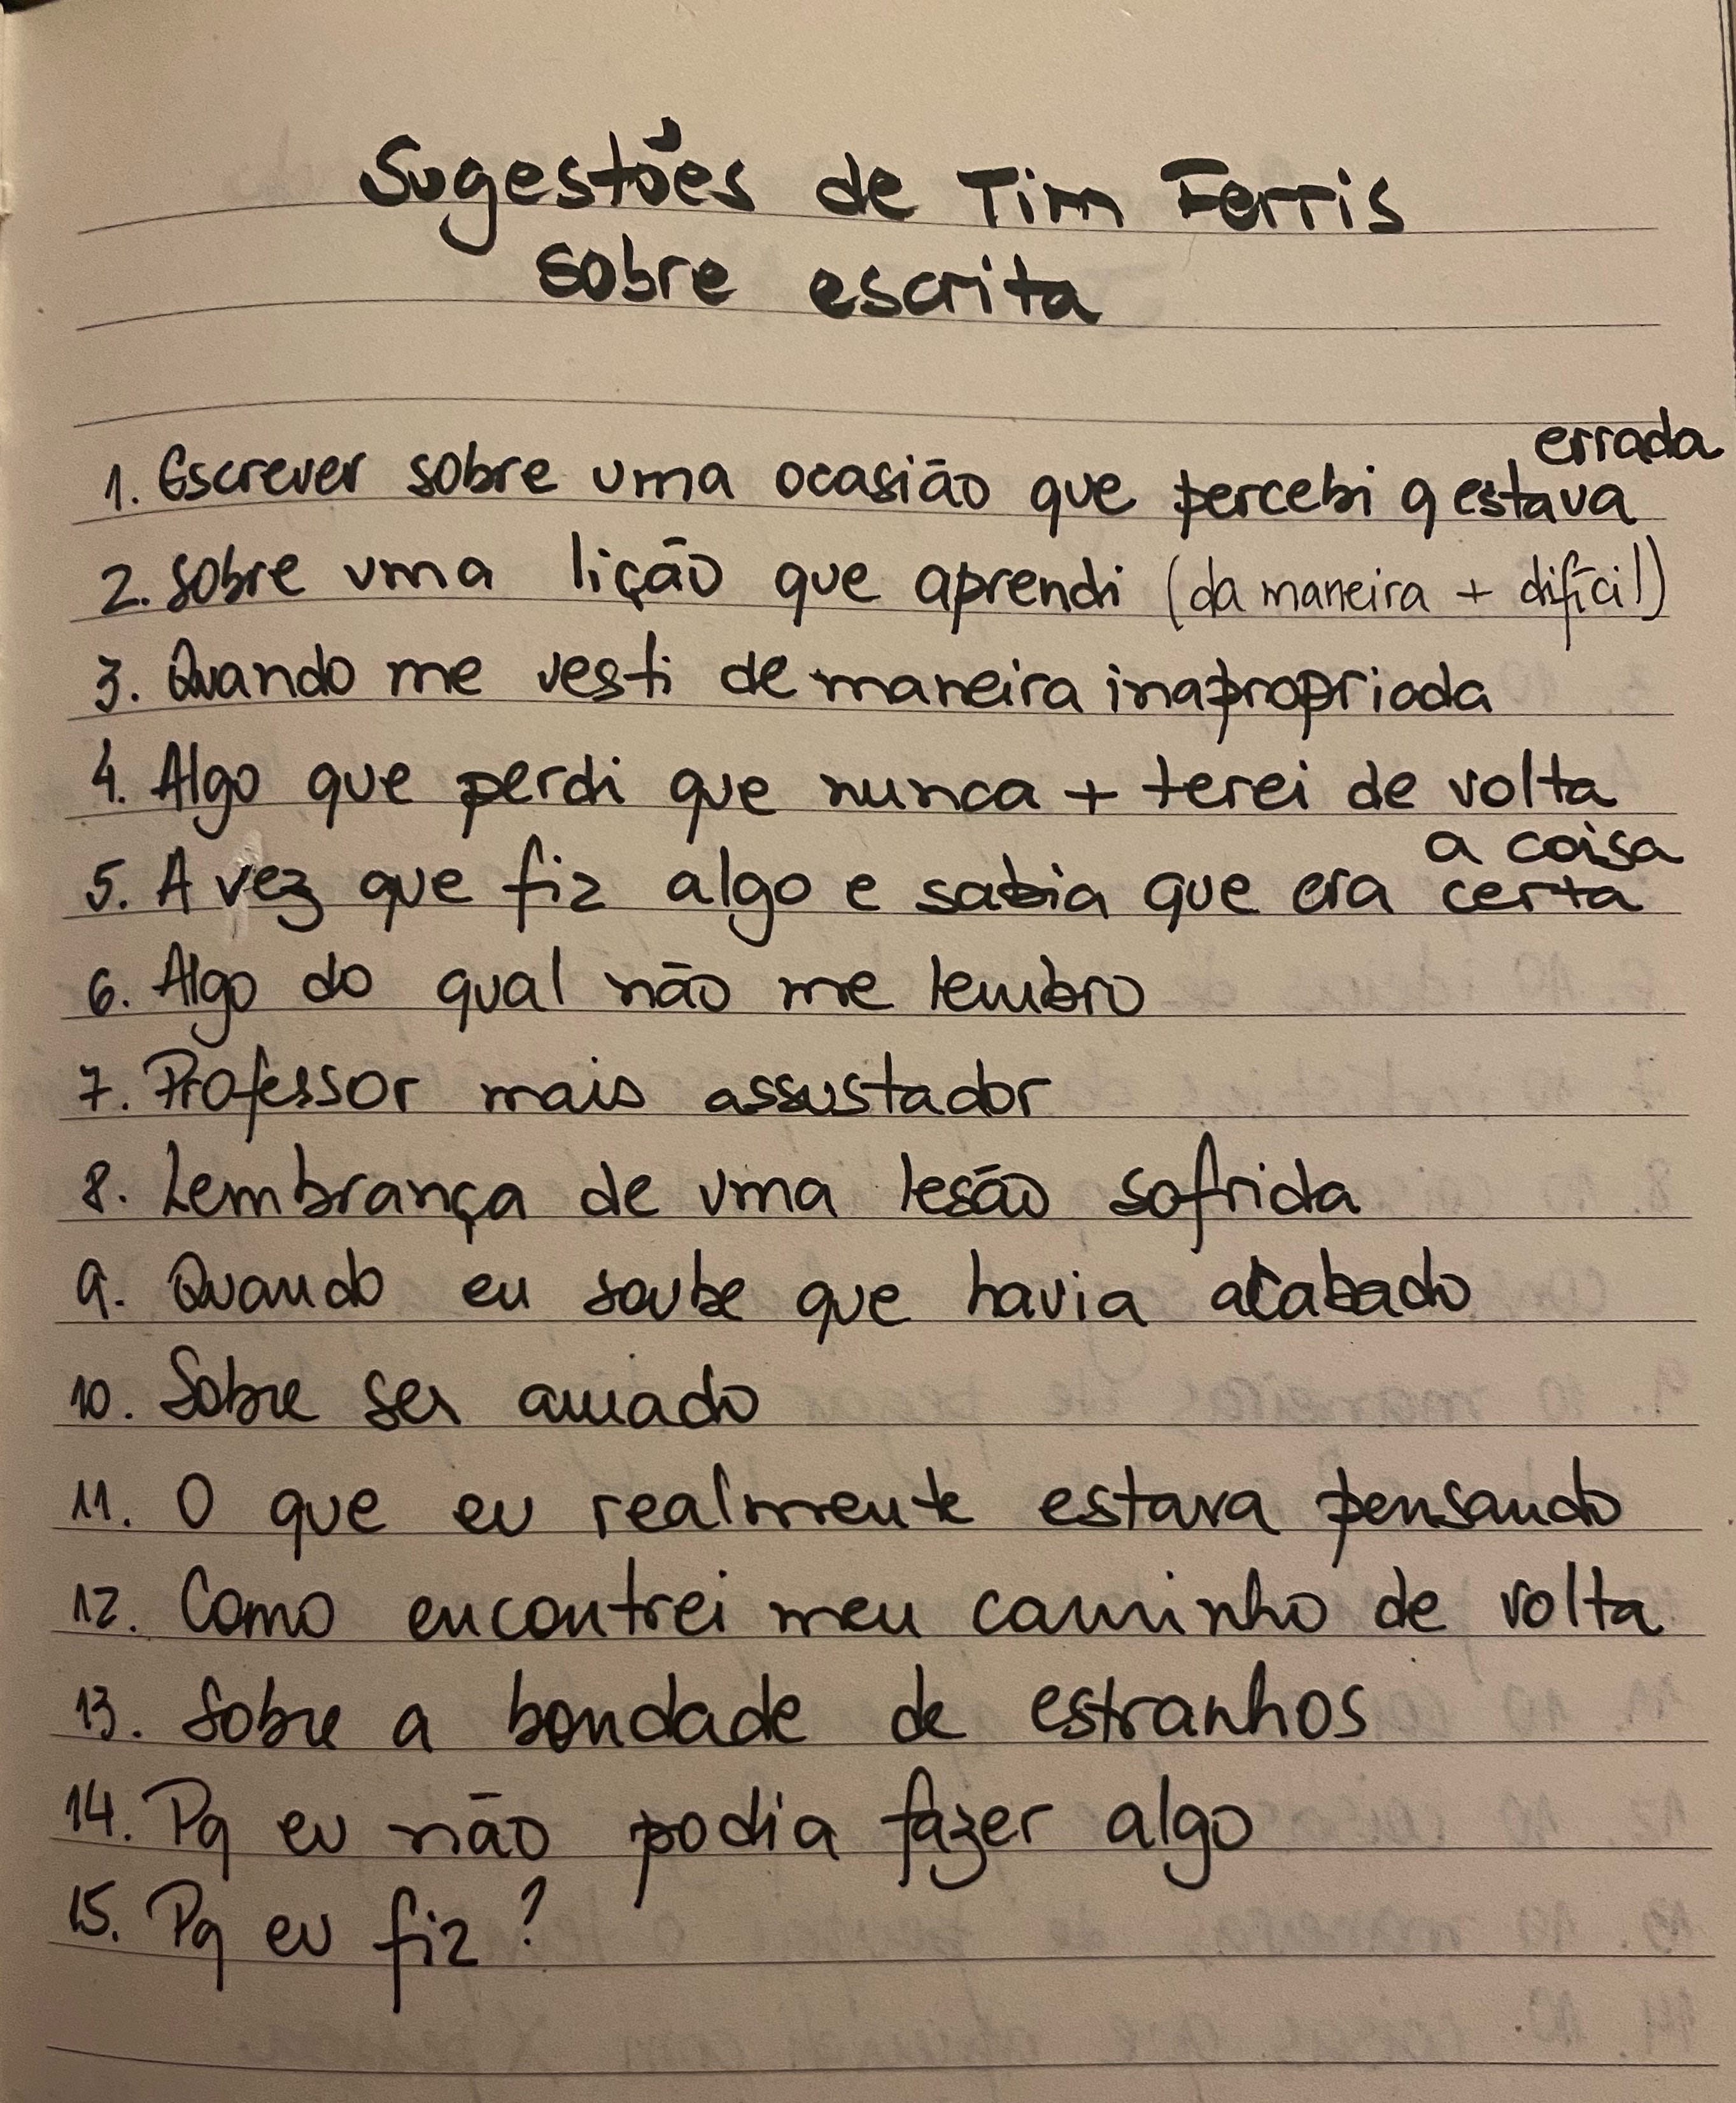 Sugestões de Tim Ferris
sobre escrita
1. Escrever sobre uma ocasião que percebi q estava errada
2. Sobre uma lição que aprendi (da maneira + difícil)
3. Quando me vesti de maneira inapropriada
4. Algo que perdi que nunca + terei de volta
5. A vez que fiz algo e sabia que era a coisa certa
6. Algo do qual não me lembro
7. Professor mais assustador
8. Lembrança de uma lesão sofrida
9. Quando eu soube que havia acabado
10. Sobre ser amado
11. O que eu realmente estava pensando
12. Como encontrei meu caminho de volta
13. Sobre a bondade de estranhos
14. Pq eu não podia fazer algo
15. Pq eu fiz?